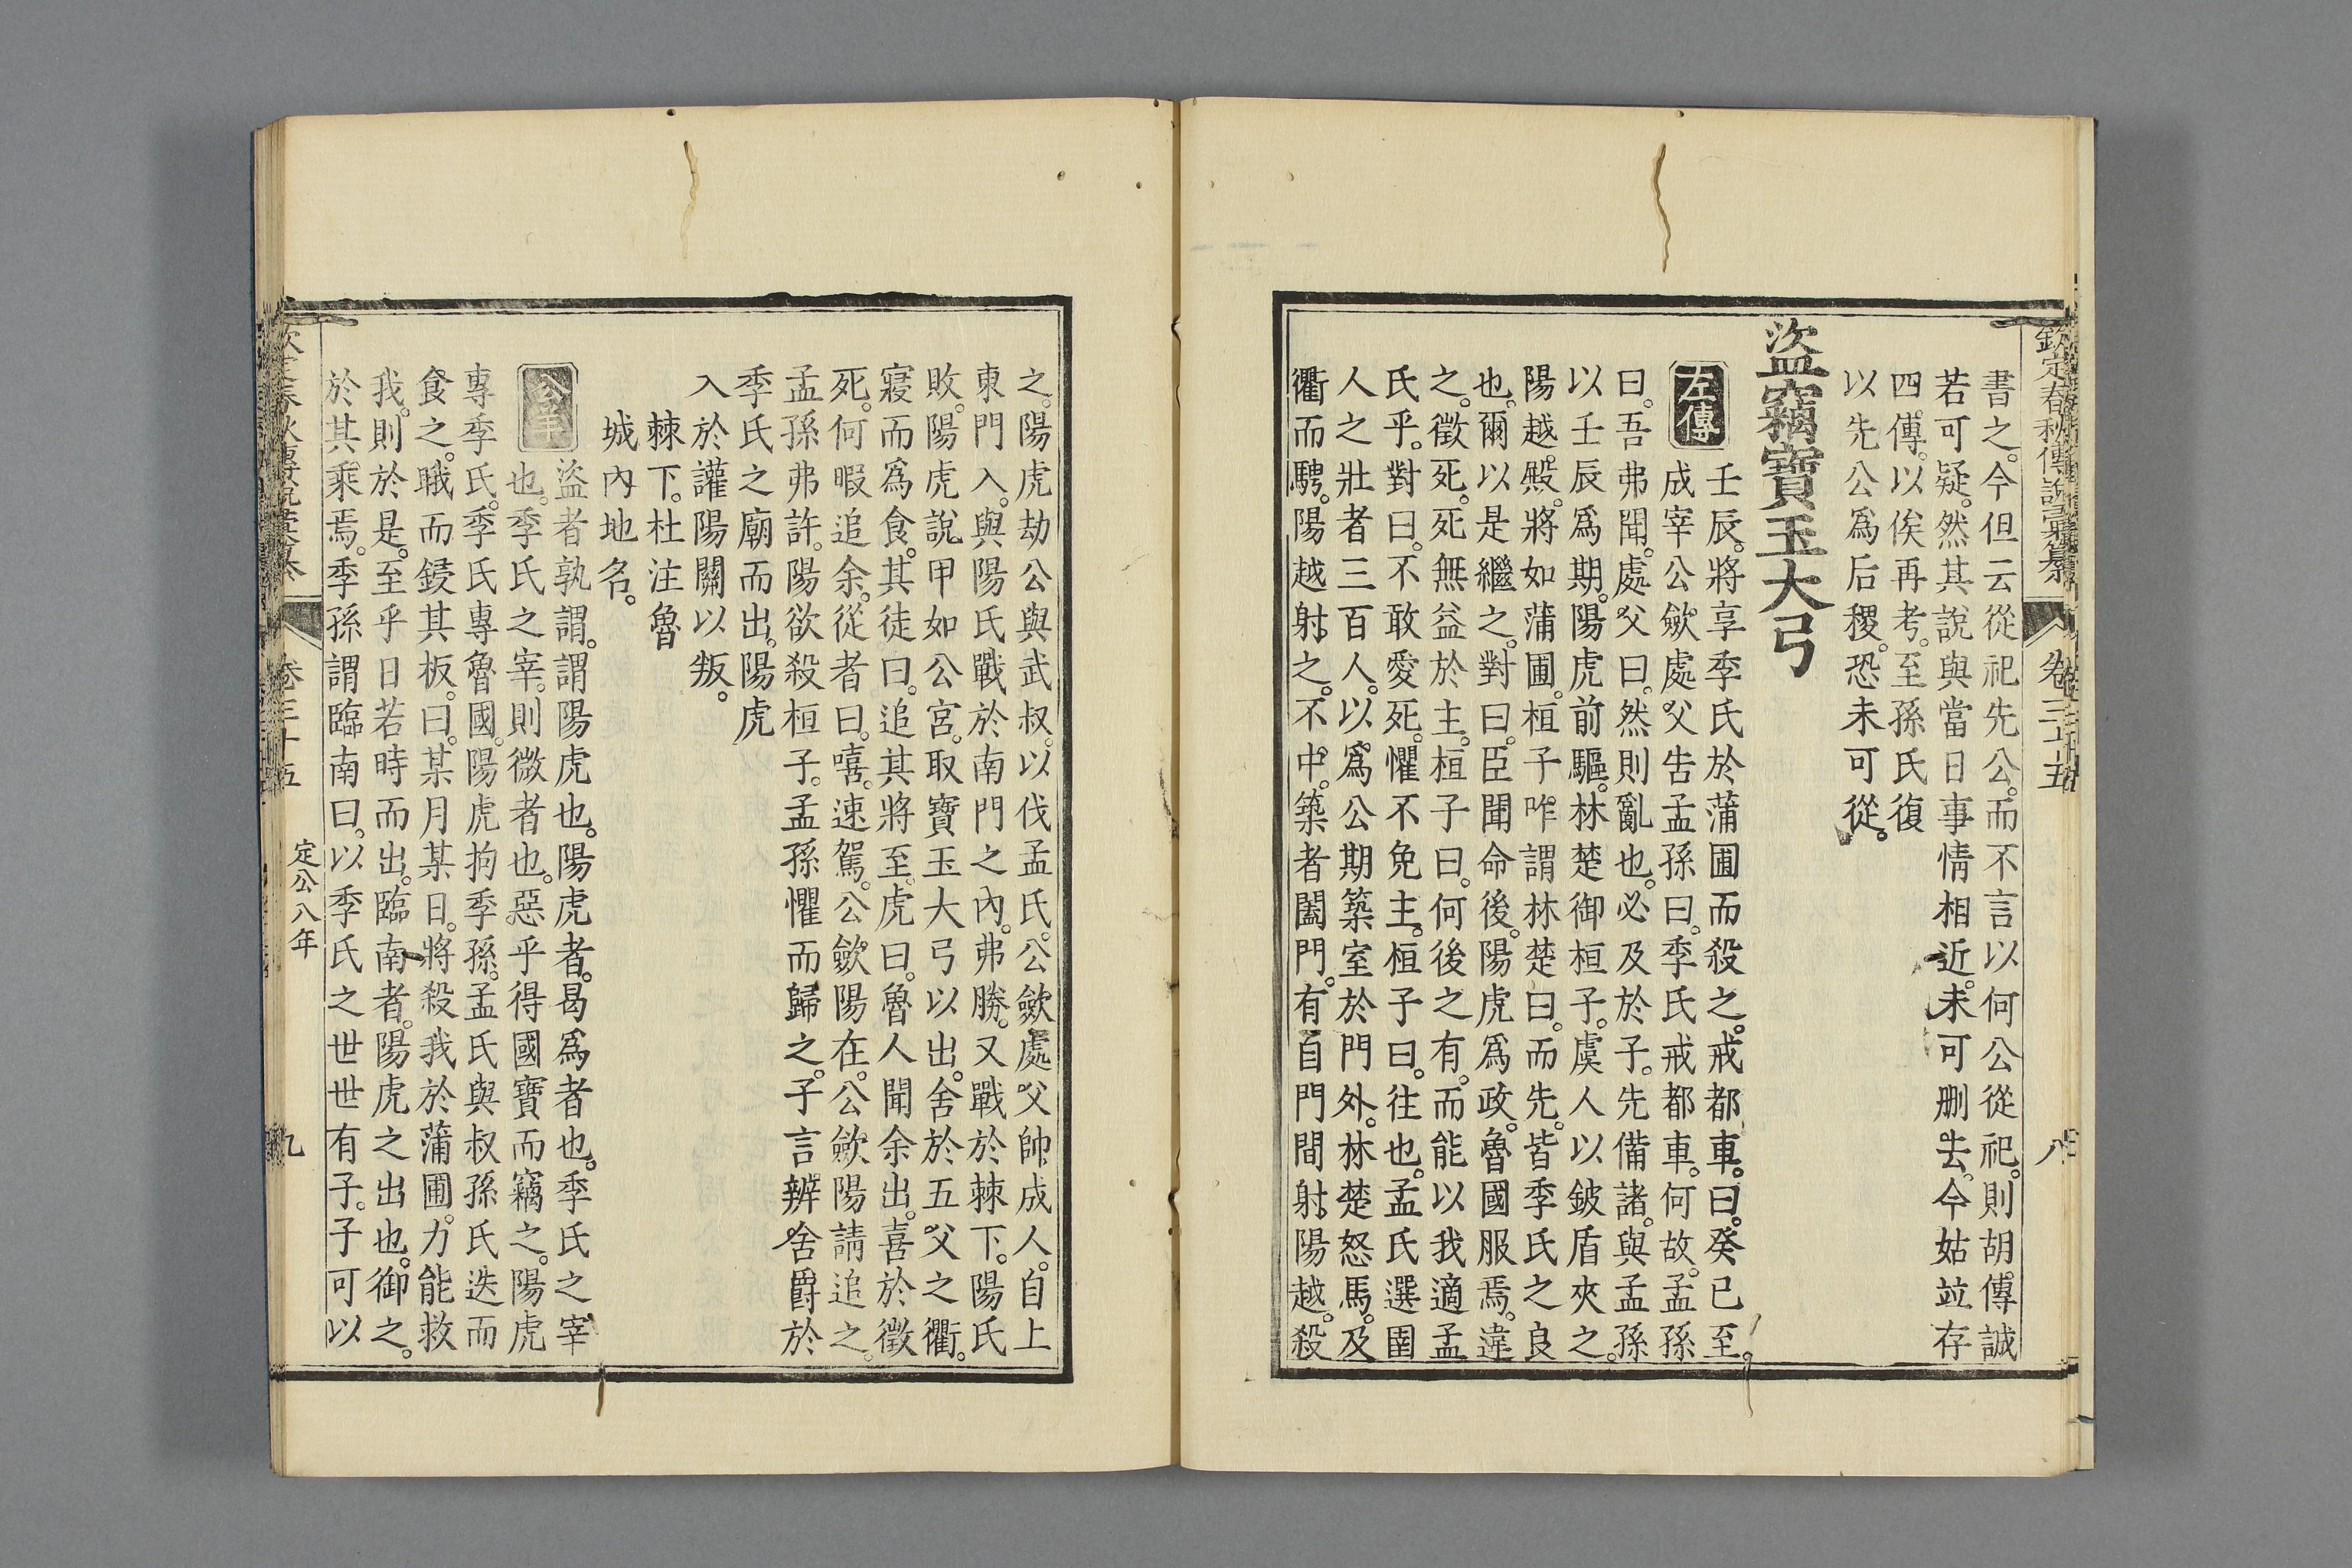 欽定春秋傳說彙纂 卷三十五 八
書之。今但云從祀先公。而不言以何公從祀。則胡傳誠
若可疑。然其說與當日事情相近。未可刪去。今姑竝存
四傳。以俟再考。至孫氏復
以先公爲后稷。恐未可從。
盜竊寶玉大弓
左傳 壬辰。將享季氏於蒲圃而殺之。戒都車。曰。癸巳至。
成宰公歛處父告孟孫曰。季氏戒都車。何故。孟孫
曰。吾弗聞。處父曰。然則亂也。必及於子。先備諸。與孟孫
以壬辰爲期。陽虎前驅。林楚御桓子。虞人以鈹盾夾之。
陽越。殿。將如蒲圃。桓子咋謂林楚曰。而先。皆季氏之良
也。爾以是繼之。對曰。臣聞命後。陽虎爲政。魯國服焉。違
之。徵死。死無益於主。桓子曰。何後之有。而能以我適孟
氏乎。對曰。不敢愛死。懼不免主。桓子曰。往也。孟氏選圉
人之壯者三百人。以爲公期築室於門外。林楚怒馬。及
衢而騁。陽越射之。不中。築者闔門。有自門間射陽越。殺
之。陽虎劫公與武叔。以伐孟氏。公歛處父帥成人。自上
東門入。與陽氏戰於南門之內。弗勝。又戰於棘下。陽氏
敗。陽虎說甲如公宮。取寶玉大弓以出。舍於五父之衢。
寢而爲食。其徒曰。追其將至。虎曰。魯人聞余出。喜於徵
死。何暇追余。從者曰。嘻。速駕。公歛陽在。公歛陽請追之。
孟孫弗許。陽欲殺桓子。孟孫懼而歸之。子言辨舍爵於
季氏之廟而出。陽虎
入於讙陽關以叛。
棘下。杜注魯
城內地名。
公羊 盜者孰謂。謂陽虎也。陽虎者。曷爲者也。季氏之宰
也。季氏之宰。則微者也。惡乎得國寶而竊之。陽虎
專季氏。季氏專魯國。陽虎拘季孫。孟氏與叔孫氏迭而
食之。睋而鋟其板。曰。某月某日。將殺我於蒲圃。力能救
我。則於是。至乎日若時而出。臨南者。陽虎之出也。御之。
於其乘焉。季孫謂臨南曰。以季氏之世世有子。子可以
卷三十五 定公八年 九